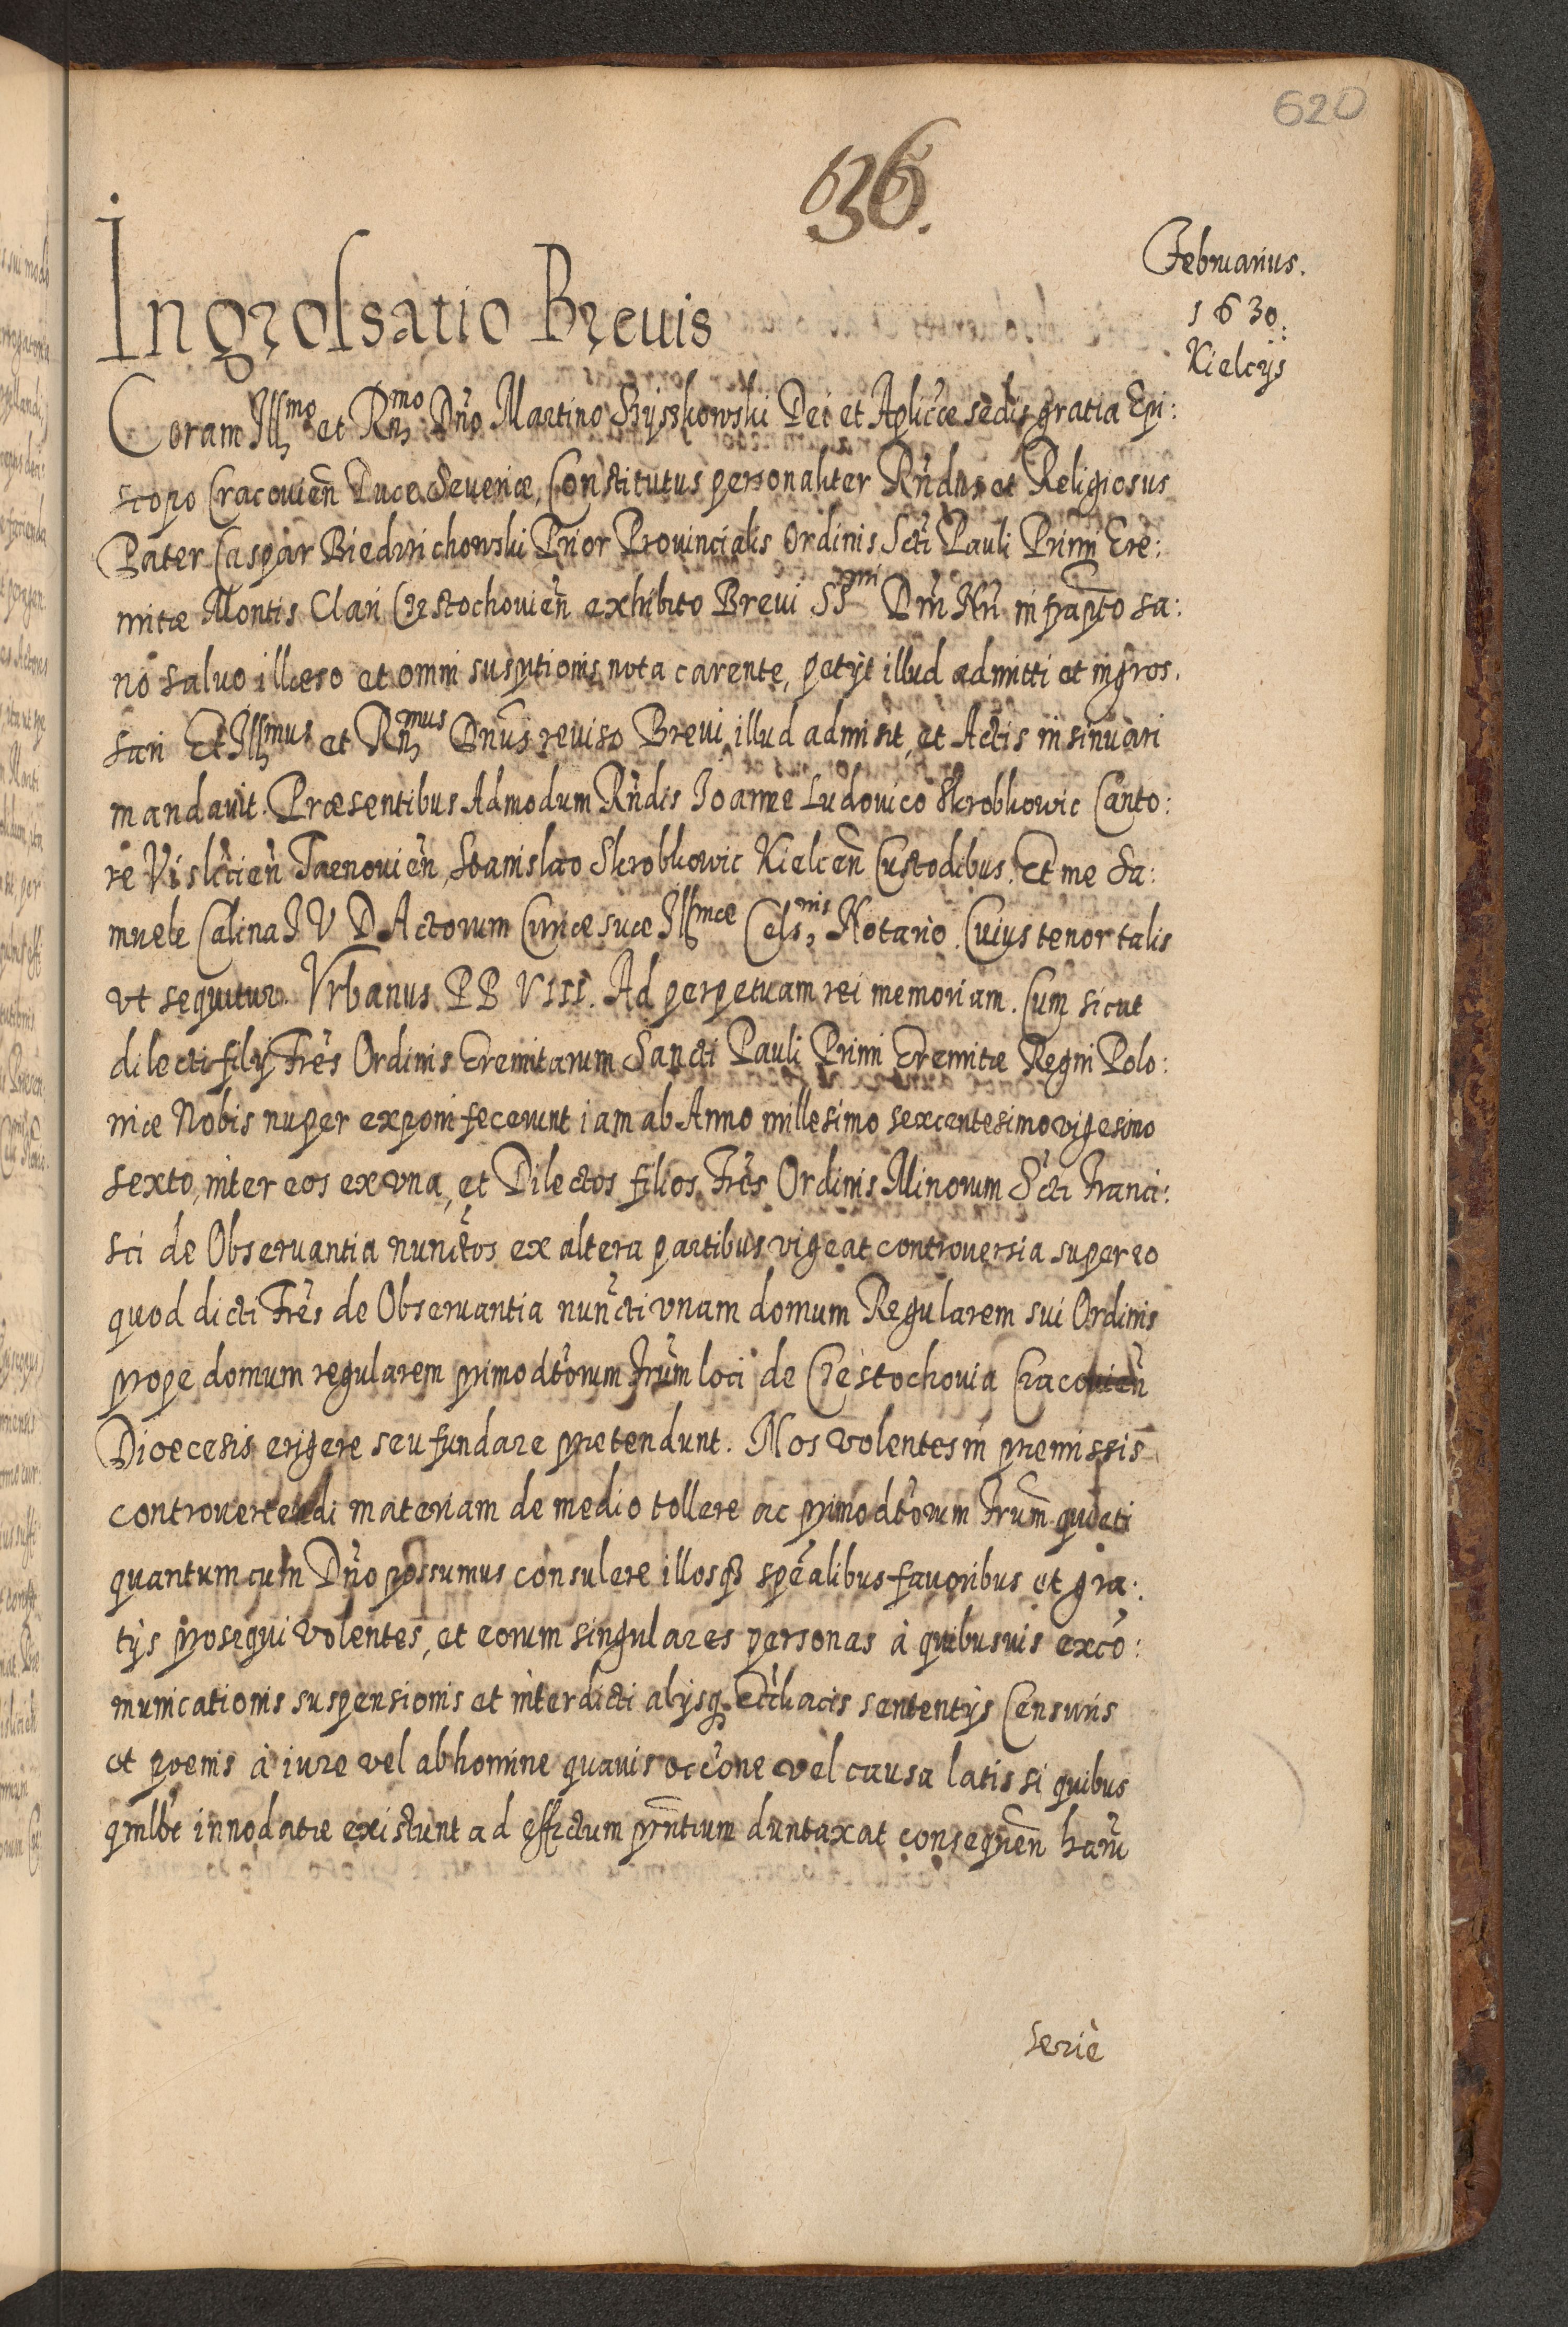 620
636.
Februarius.
1630.
Kielcijs
Ingrossatio Breuis
Coram Illmo et Rndmo Dño Martino Szyszkowski Dei et Aplicæ sedis gratia Epi:
scopo Cracouien̄ Duce Seueriæ, Constitutus personaliter Rñdus et Religiosus
Pater Caspar Biedrzichowski Prior Prouincialis Ordinis Scti Pauli Primi Ere:
mitæ Montis Clari Czestochouien̄ exhibito Breui SSmi Dñi Nñi infrapto sa:
no saluo illæso et omni susptionis nota carente, petijt illud admitti et ingros.
sari Et Illmus et Rndmus Dnus reuiso Breui illud admisit et Actis insinuari
mandauit. Præsentibus Admodum Rñdis Joanne Ludouico Skrobkowic Canto:
re Vislicien̄ Tarnouien̄, Stanislao Skrobkowic Kielcen̄ Custodibus. Et me Sa:
muele Calina I V D Actorum Curiæ suæ Illmæ Celsnis Notario. Cuius tenor talis
vt sequitur. Vrbanus PP VIII. Ad perpetuam rei memoriam. Cum sicut
dilecti filij Fres Ordinis Eremitarum Sancti Pauli Primi Eremitæ Regni Polo:
niæ Nobis nuper exponi fecerunt iam ab Anno millesimo sexcentesimo vigesimo
sexto, inter eos ex vna, et Dilectos filios Fres Ordinis Minorum Scti Franci:
sci de Obseruantia nunctos ex altera partibus vigeat controuersia super eo
quod dicti Fres de Obseruantia nuncti vnam domum Regularem sui Ordinis
prope domum regularem primodtorum Frum loci de Czestochouia Cracouien̄
Dioecesis erigere seu fundare pretendunt. Nos volentes in premissis
controuertendi materiam de medio tollere ac primodtorum Frum quieti
quantum cum Dño possumus consulere illosq spealibus fauoribus et gra:
tijs prosequi volentes, et eorum singulares personas à quibusuis exco:
municationis suspensionis et interdicti alijsq Ecclhacis sententijs Censuris
et poenis à iure vel ab homine quauis occone vel causa latis si quibus
qmlbt innodatæ existunt ad effectum pntium duntaxat consequen̄ haru
serie